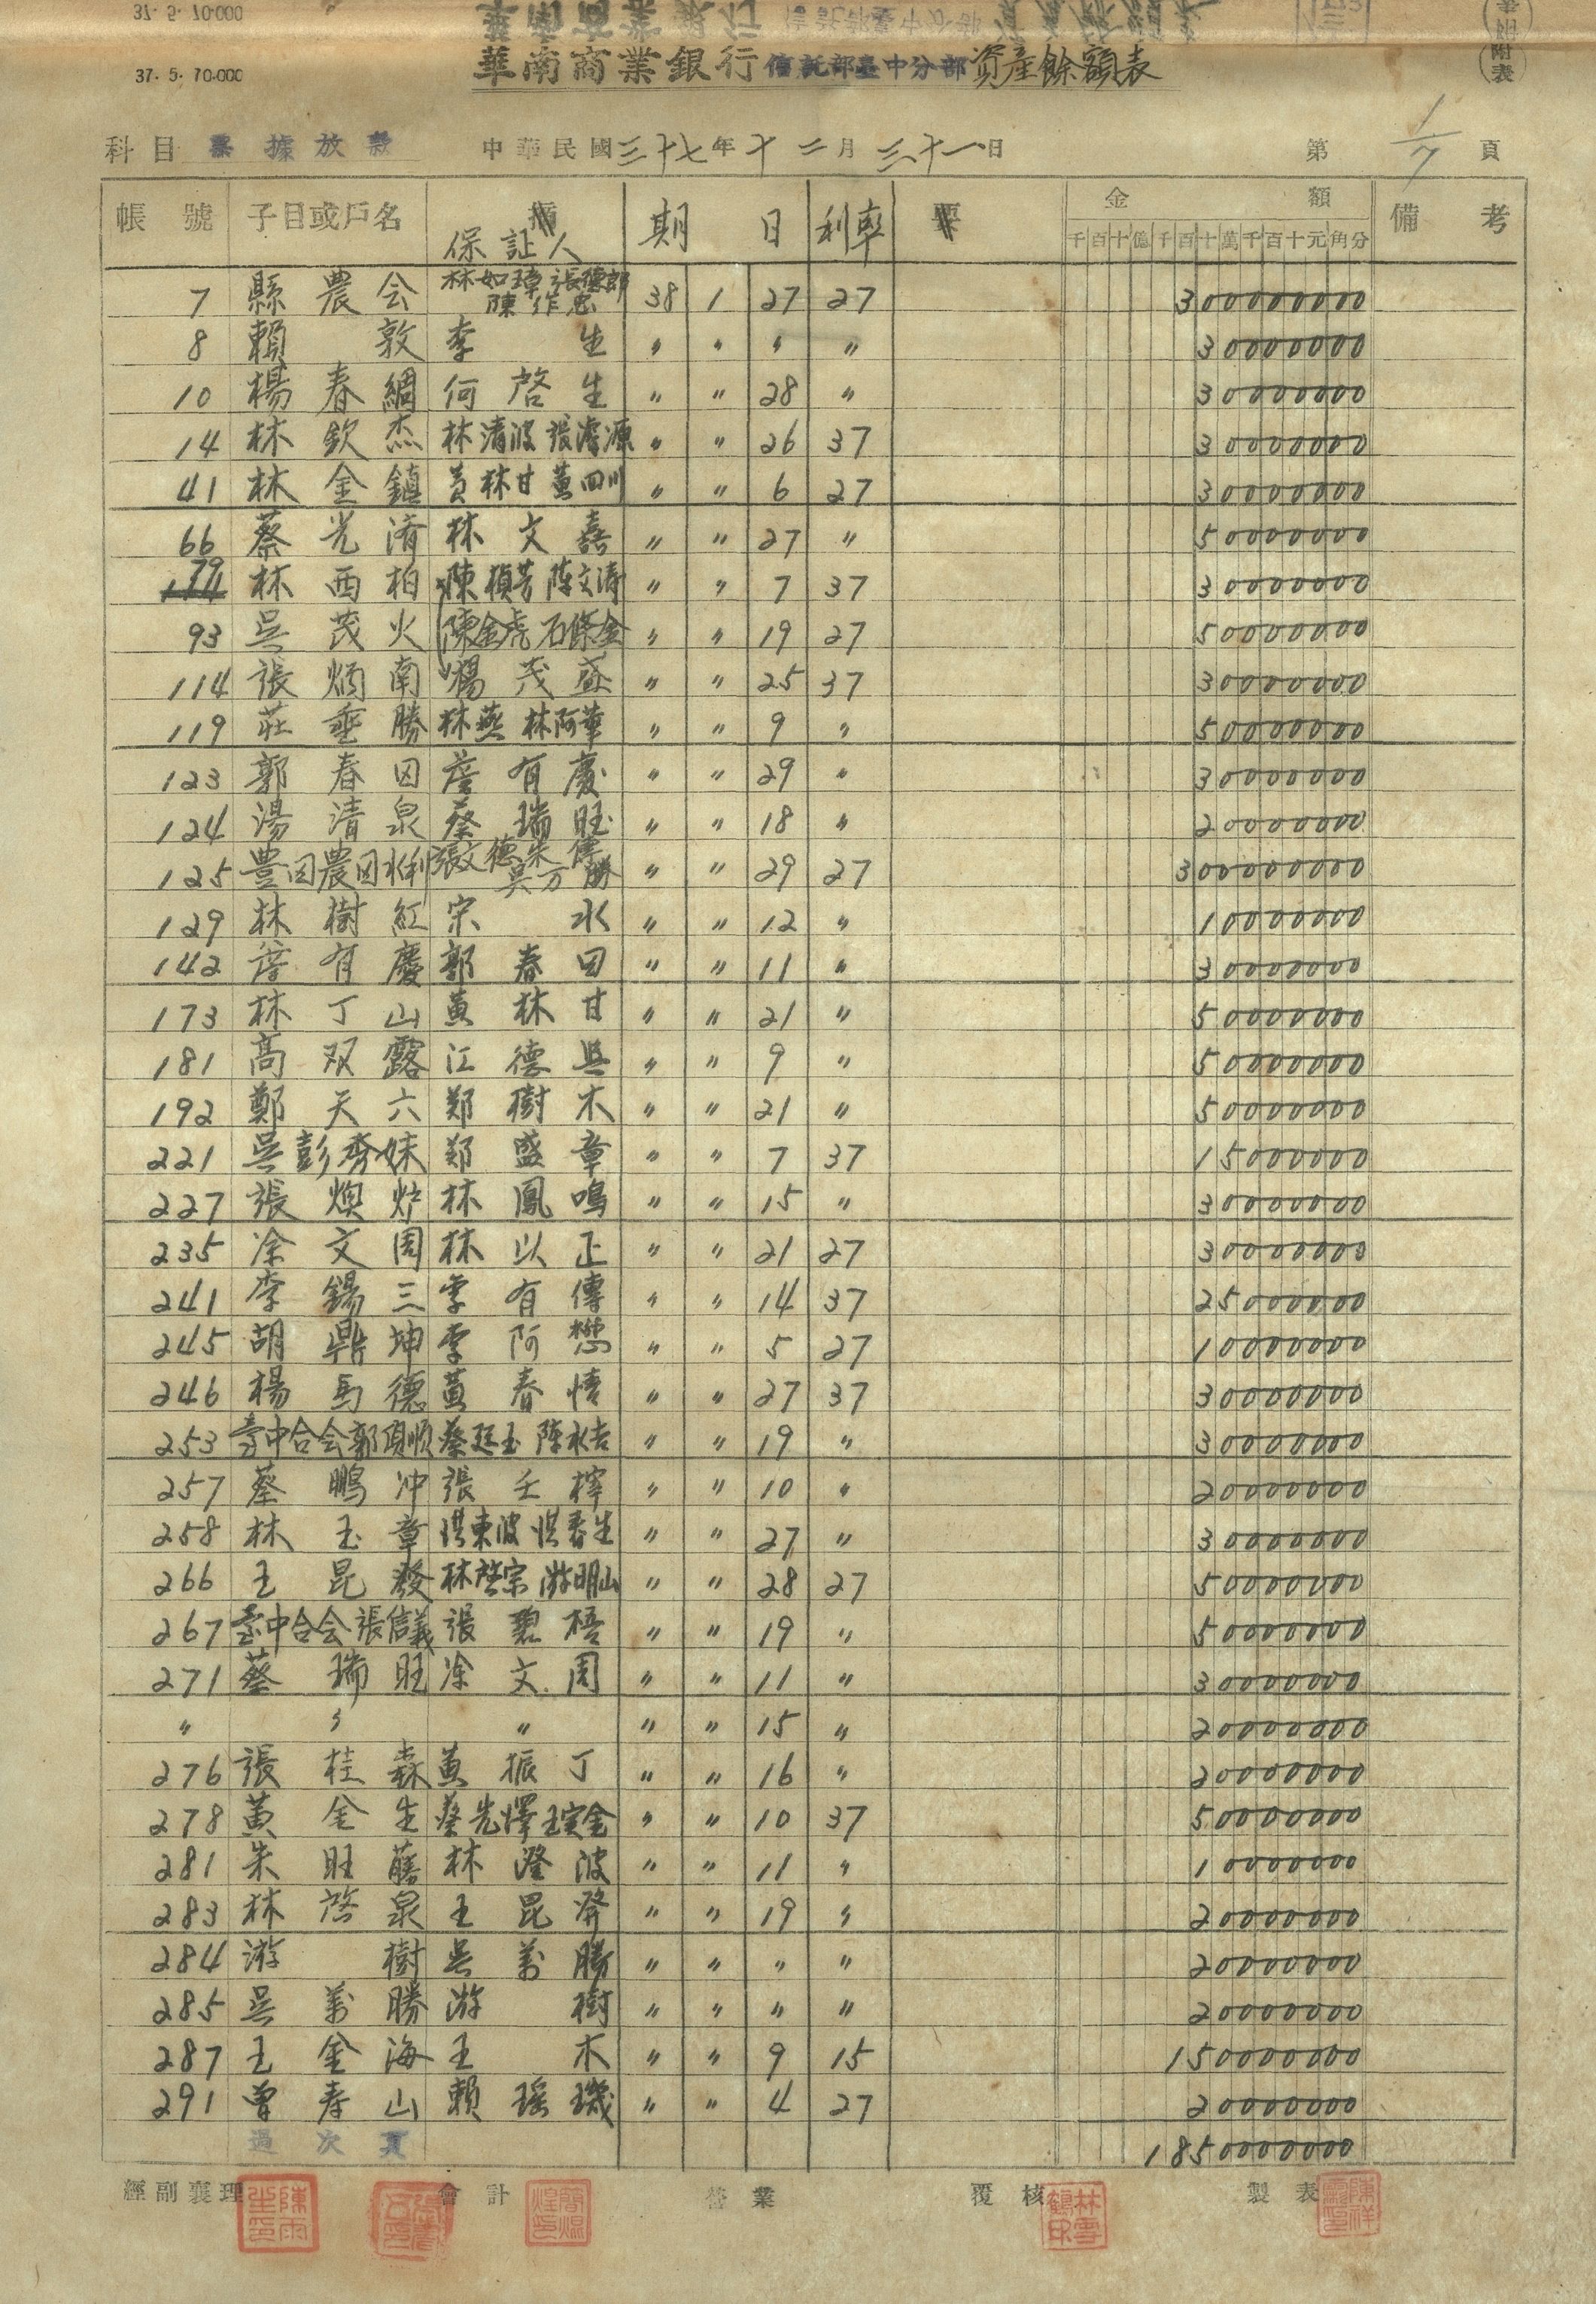 37. 5. 70.000
37. 5. 70.000
華南商業銀行信託部臺中分部資產餘額表
附表
科目 票據放款 中華民國三十七年十二月三十一日 第 1/7 頁
帳號 子目或戶名 摘 保証人 期日 利率 要 金額 備考
千百十億千百十萬千百十元角分
7 縣農会 林如璋 張德郎 陳作忠 38 1 27 27 300000000
8 賴敦 李生 〃 〃 〃 〃 30000000
10 楊春綢 何啓生 〃 〃 28 〃 30000000
14 林欽杰 林清波 張濬源 〃 〃 26 37 30000000
41 林金鎮 黃林甘 黃四川 〃 〃 6 27 30000000
66 蔡光湇 林文嘉 〃 〃 27 〃 50000000
79 林西柏 陳楨芳 陳文濤 〃 〃 7 37 30000000
93 吳茂火 陳金虎 石條金 〃 〃 19 27 50000000
114 張炳南 楊茂盛 〃 〃 25 37 30000000
119 莊垂勝 林燕 林阿華 〃 〃 9 〃 50000000
123 郭春田 詹有慶 〃 〃 29 〃 30000000
124 湯清泉 蔡瑞旺 〃 〃 18 〃 20000000
125 豊田農田水利 張文德 朱傳 吳万勝 〃 〃 29 27 300000000
129 林樹紅 宗水 〃 〃 12 〃 10000000
142 詹有慶 郭春田 〃 〃 11 〃 30000000
173 林丁山 黃林甘 〃 〃 21 〃 50000000
181 高双露 江德興 〃 〃 9 〃 50000000
192 鄭天六 郑樹木 〃 〃 21 〃 50000000
221 吳彭秀妹 郑盛章 〃 〃 7 37 15000000
227 張煥炉 林鳳鳴 〃 〃 15 〃 30000000
235 凃文周 林以正 〃 〃 21 27 30000000
241 李錫三 李有傳 〃 〃 14 37 25000000
245 胡鼎坤 李阿懋 〃 〃 5 27 10000000
246 楊馬德 黃春情 〃 〃 27 37 30000000
253 臺中合会郭頂順 蔡廷玉 陳永吉 〃 〃 19 〃 30000000
257 蔡鵬冲 張壬梓 〃 〃 10 〃 20000000
258 林玉章 洪東波 洪春生 〃 〃 27 〃 30000000
266 王昆發 林啓宗 游明山 〃 〃 28 27 50000000
267 臺中合会張信義 張碧梧 〃 〃 19 〃 50000000
271 蔡瑞旺 凃文周 〃 〃 11 〃 30000000
〃 〃 〃 〃 〃 15 〃 20000000
276 張桂森 黃振丁 〃 〃 16 〃 20000000
278 黃金生 蔡光澤 王寅金 〃 〃 10 37 50000000
281 朱旺藤 林澄波 〃 〃 11 〃 10000000
283 林啓泉 王昆發 〃 〃 19 〃 20000000
284 游樹 吳萬勝 〃 〃 〃 〃 20000000
285 吳萬勝 游樹 〃 〃 〃 〃 20000000
287 王金海 王木 〃 〃 9 15 150000000
291 曾寿山 賴瑤璣 〃 〃 4 27 20000000
過次頁 1850000000
經副襄理 會計 營業 覆核 製表